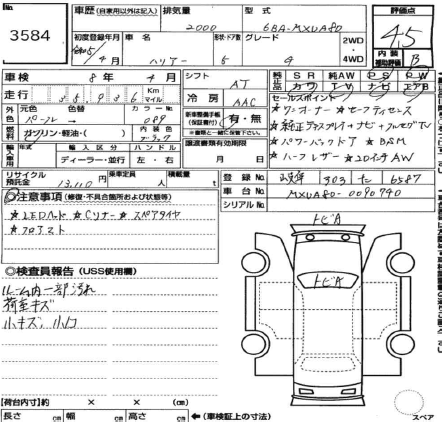 No.
3584
車歴 (自家用以外は記入)
排気量
2000
型式
6BA-MXUA80
評価点
4.5
初度登録年月
4月
車名
ハリアー
形状・ドア数
5
グレード
G
2WD
4WD
内装
補助評価
B
車検
8年 4月
シフト
AT
純正品
SR 純AW PS PW
カワ TV ナビ エアB
走行
55936
Km
マイル
冷房
AAC
セールスポイント
★ワンオーナー ★セーフティセンス
★純正ディスプレイ+ナビ+フルセグTV
★パワーバックドア ★BSM
★ハーフレザー ★20インチAW
外色
元色
パール
色替
カラーNo.
089
新車整備手帳
(保証書付)
有・無
※書類と一緒に保管下さい。
燃料
ガソリン・軽油・( )
内装色
ブラック
輸入車用
年式
輸入区分
ディーラー・並行
ハンドル
左・右
譲渡書類有効期限
月 日
リサイクル
預託金
13,110
円
乗車定員
人
積載量
t
登録No.
303 た 6587
車台No.
MXUA80-0090790
シリアルNo.
注意事項 (修復・不具合箇所および状態等)
★LEDヘッド ★Cソナー ★スペアタイヤ
★フロアスト
トビA
トビA
◎検査員報告 (USS使用欄)
ルーム内一部汚れ
荷室キズ
小キズ、小凹
【荷台内寸】約 × × (cm)
長さ cm 幅 cm 高さ cm ←(車検証上の寸法)
スペア